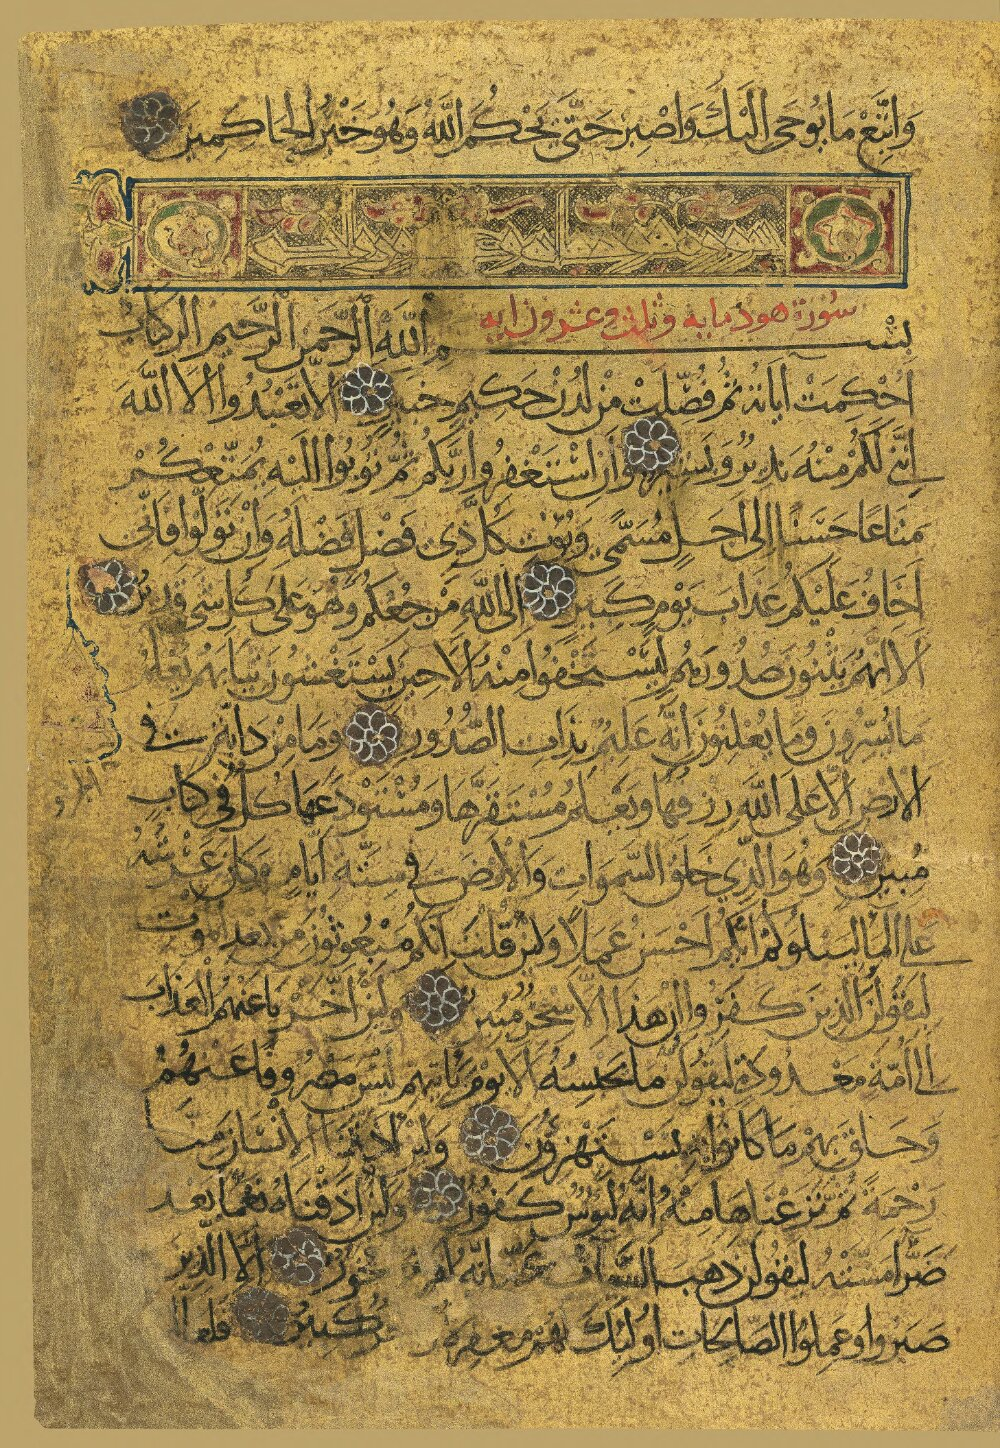 وَاتَّبِعْ مَا يُوحَى إِلَيْكَ وَاصْبِرْ حَتَّى يَحْكُمَ اللَّهُ وَهُوَ خَيْرُ الْحَاكِمِينَ
سُورَة هود مايه وثلث وعشرون ايه
بِسْمِ اللَّهِ الرَّحْمَنِ الرَّحِيمِ الر كِتَابٌ
أُحْكِمَتْ آيَاتُهُ ثُمَّ فُصِّلَتْ مِنْ لَدُنْ حَكِيمٍ خَبِيرٍ أَلَّا تَعْبُدُوا إِلَّا اللَّهَ
إِنَّنِي لَكُمْ مِنْهُ نَذِيرٌ وَبَشِيرٌ وَأَنِ اسْتَغْفِرُوا رَبَّكُمْ ثُمَّ تُوبُوا إِلَيْهِ يُمَتِّعْكُمْ
مَتَاعًا حَسَنًا إِلَى أَجَلٍ مُسَمًّى وَيُؤْتِ كُلَّ ذِي فَضْلٍ فَضْلَهُ وَإِنْ تَوَلَّوْا فَإِنِّي
أَخَافُ عَلَيْكُمْ عَذَابَ يَوْمٍ كَبِيرٍ إِلَى اللَّهِ مَرْجِعُكُمْ وَهُوَ عَلَى كُلِّ شَيْءٍ قَدِيرٌ
أَلَا إِنَّهُمْ يَثْنُونَ صُدُورَهُمْ لِيَسْتَخْفُوا مِنْهُ أَلَا حِينَ يَسْتَغْشُونَ ثِيَابَهُمْ يَعْلَمُ
مَا يُسِرُّونَ وَمَا يُعْلِنُونَ إِنَّهُ عَلِيمٌ بِذَاتِ الصُّدُورِ وَمَا مِنْ دَابَّةٍ فِي
الْأَرْضِ إِلَّا عَلَى اللَّهِ رِزْقُهَا وَيَعْلَمُ مُسْتَقَرَّهَا وَمُسْتَوْدَعَهَا كُلٌّ فِي كِتَابٍ
مُبِينٍ وَهُوَ الَّذِي خَلَقَ السَّمَوَاتِ وَالْأَرْضَ فِي سِتَّةِ أَيَّامٍ وَكَانَ عَرْشُهُ
عَلَى الْمَاءِ لِيَبْلُوَكُمْ أَيُّكُمْ أَحْسَنُ عَمَلًا وَلَئِنْ قُلْتَ إِنَّكُمْ مَبْعُوثُونَ مِنْ بَعْدِ الْمَوْتِ
لَيَقُولَنَّ الَّذِينَ كَفَرُوا إِنْ هَذَا إِلَّا سِحْرٌ مُبِينٌ وَلَئِنْ أَخَّرْنَا عَنْهُمُ الْعَذَابَ
إِلَى أُمَّةٍ مَعْدُودَةٍ لَيَقُولُنَّ مَا يَحْبِسُهُ أَلَا يَوْمَ يَأْتِيهِمْ لَيْسَ مَصْرُوفًا عَنْهُمْ
وَحَاقَ بِهِمْ مَا كَانُوا بِهِ يَسْتَهْزِئُونَ وَلَئِنْ أَذَقْنَا الْإِنْسَانَ مِنَّا
رَحْمَةً ثُمَّ نَزَعْنَاهَا مِنْهُ إِنَّهُ لَيَئُوسٌ كَفُورٌ وَلَئِنْ أَذَقْنَاهُ نَعْمَاءَ بَعْدَ
ضَرَّاءَ مَسَّتْهُ لَيَقُولَنَّ ذَهَبَ السَّيِّئَاتُ عَنِّي إِنَّهُ لَفَرِحٌ فَخُورٌ إِلَّا الَّذِينَ
صَبَرُوا وَعَمِلُوا الصَّالِحَاتِ أُولَئِكَ لَهُمْ مَغْفِرَةٌ وَأَجْرٌ كَبِيرٌ فَلَعَلَّكَ